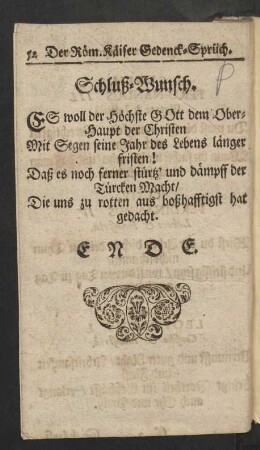 52 Der Röm. Käiser Gedenck-Sprüch.
Schluß-Wunsch.
ES woll der Höchste GOtt dem Ober-
Haupt der Christen
Mit Segen seine Jahr des Lebens länger
fristen!
Daß es noch ferner stürtz' und dämpff der
Türcken Macht/
Die uns zu rotten aus boßhafftigst hat
gedacht.
E N D E.